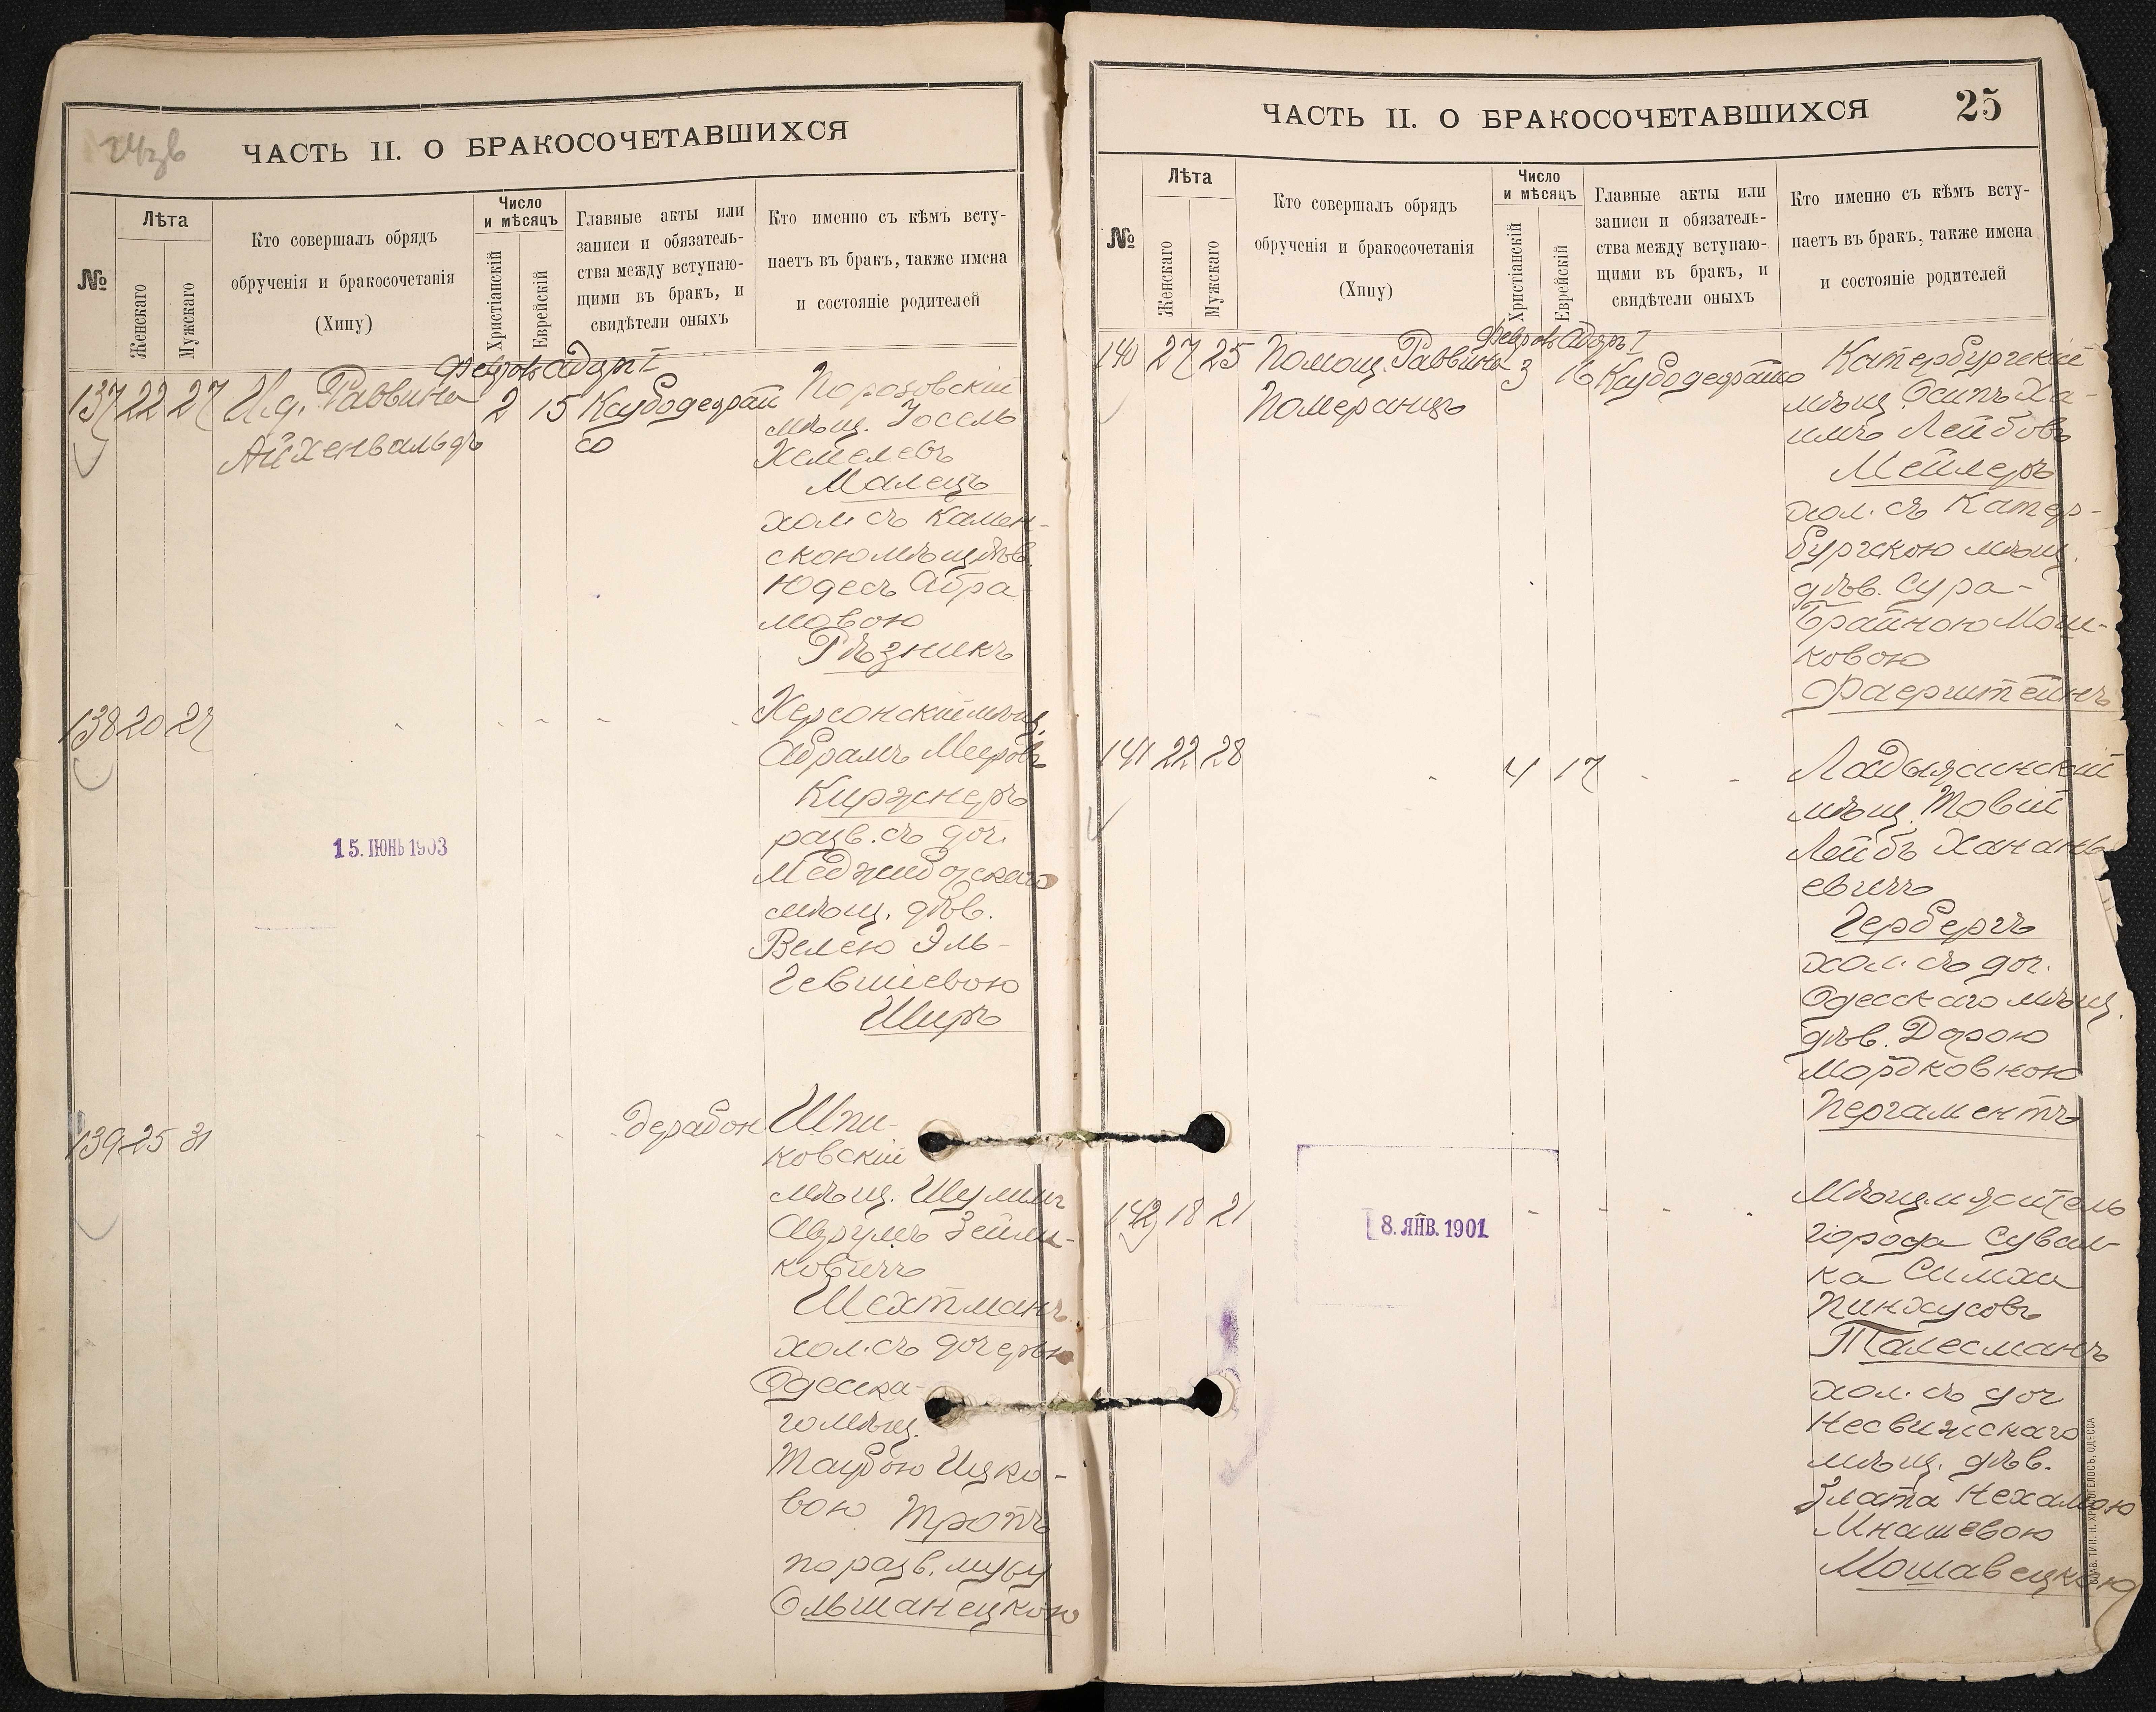 24зв
ЧАСТЬ II. О БРАКОСОЧЕТАВШИХСЯ
№
Лѣта
Женскаго
Мужскаго
Кто совершалъ обрядъ
обрученія и бракосочетанія
(Хипу)
Число
и мѣсяцъ
Христіанскій
Еврейскій
Главные акты или
записи и обязатель-
ства между вступаю-
щими въ бракъ, и
свидѣтели оныхъ
Кто именно съ кѣмъ всту-
паетъ въ бракъ, также имена
и состояніе родителей
Адаръ I
137 22 27 И.д. Раввина 2 15
Айхенвальдъ
Порозовскій
мѣщ. Іоссль
Хемелевъ
Малецъ
хол. съ Камен-
скою мѣщ. дѣв.
Юдесъ Абра-
мовою
Рѣзникъ
138 20 27
Херсонскій мѣщ.
Абрамъ Мееровъ
Киржнеръ
разв. съ доч.
Меджибожскаго
мѣщ. дѣв.
Велею Эль-
Ширъ
15. ІЮНЬ 1903
139 25 31
Шпи-
ковскій
мѣщ. Шулимъ
Аврумъ Зейли-
ковичъ
Шехтманъ
хол. съ дочерью
Одесска-
го мѣщ.
Таубою Ицко-
вою Тропъ
по разв. мужу
Ольшанецкою
ЧАСТЬ II. О БРАКОСОЧЕТАВШИХСЯ
25
№
Лѣта
Женскаго
Мужскаго
Кто совершалъ обрядъ
обрученія и бракосочетанія
(Хипу)
Число
и мѣсяцъ
Христіанскій
Еврейскій
Главные акты или
записи и обязатель-
ства между вступаю-
щими въ бракъ, и
свидѣтели оныхъ
Кто именно съ кѣмъ всту-
паетъ въ бракъ, также имена
и состояніе родителей
Адаръ I
140 27 25 Помощ. Раввина 3 16
Померанцъ
Катербургскій
мѣщ. Осипъ Ха-
имъ Лейбовъ
Мейлеръ
хол. съ Катер-
бургскою мѣщ.
дѣв. Сура-
Брайною Мош-
ковою
Фаерштейнъ
141 22 28 4 17
Ладыжинскій
мѣщ. Товій
ЛейбъХанань
евичъ
Гербергъ
хол. съ доч.
Одесскаго мѣщ.
дѣв. Дорою
Мордковною
Пергаментъ
142 18 21
8. ЯНВ. 1901
города Сувал-
ка Симха
Пинхусовъ
Талесманъ
хол. съ доч
Несвижскаго
мѣщ. дѣв.
Злата Нехамою
Мнашевою
Мошавецкою
СЛАВ. ТИП. Н. ХРИСОГЕЛОСЪ, ОДЕССА